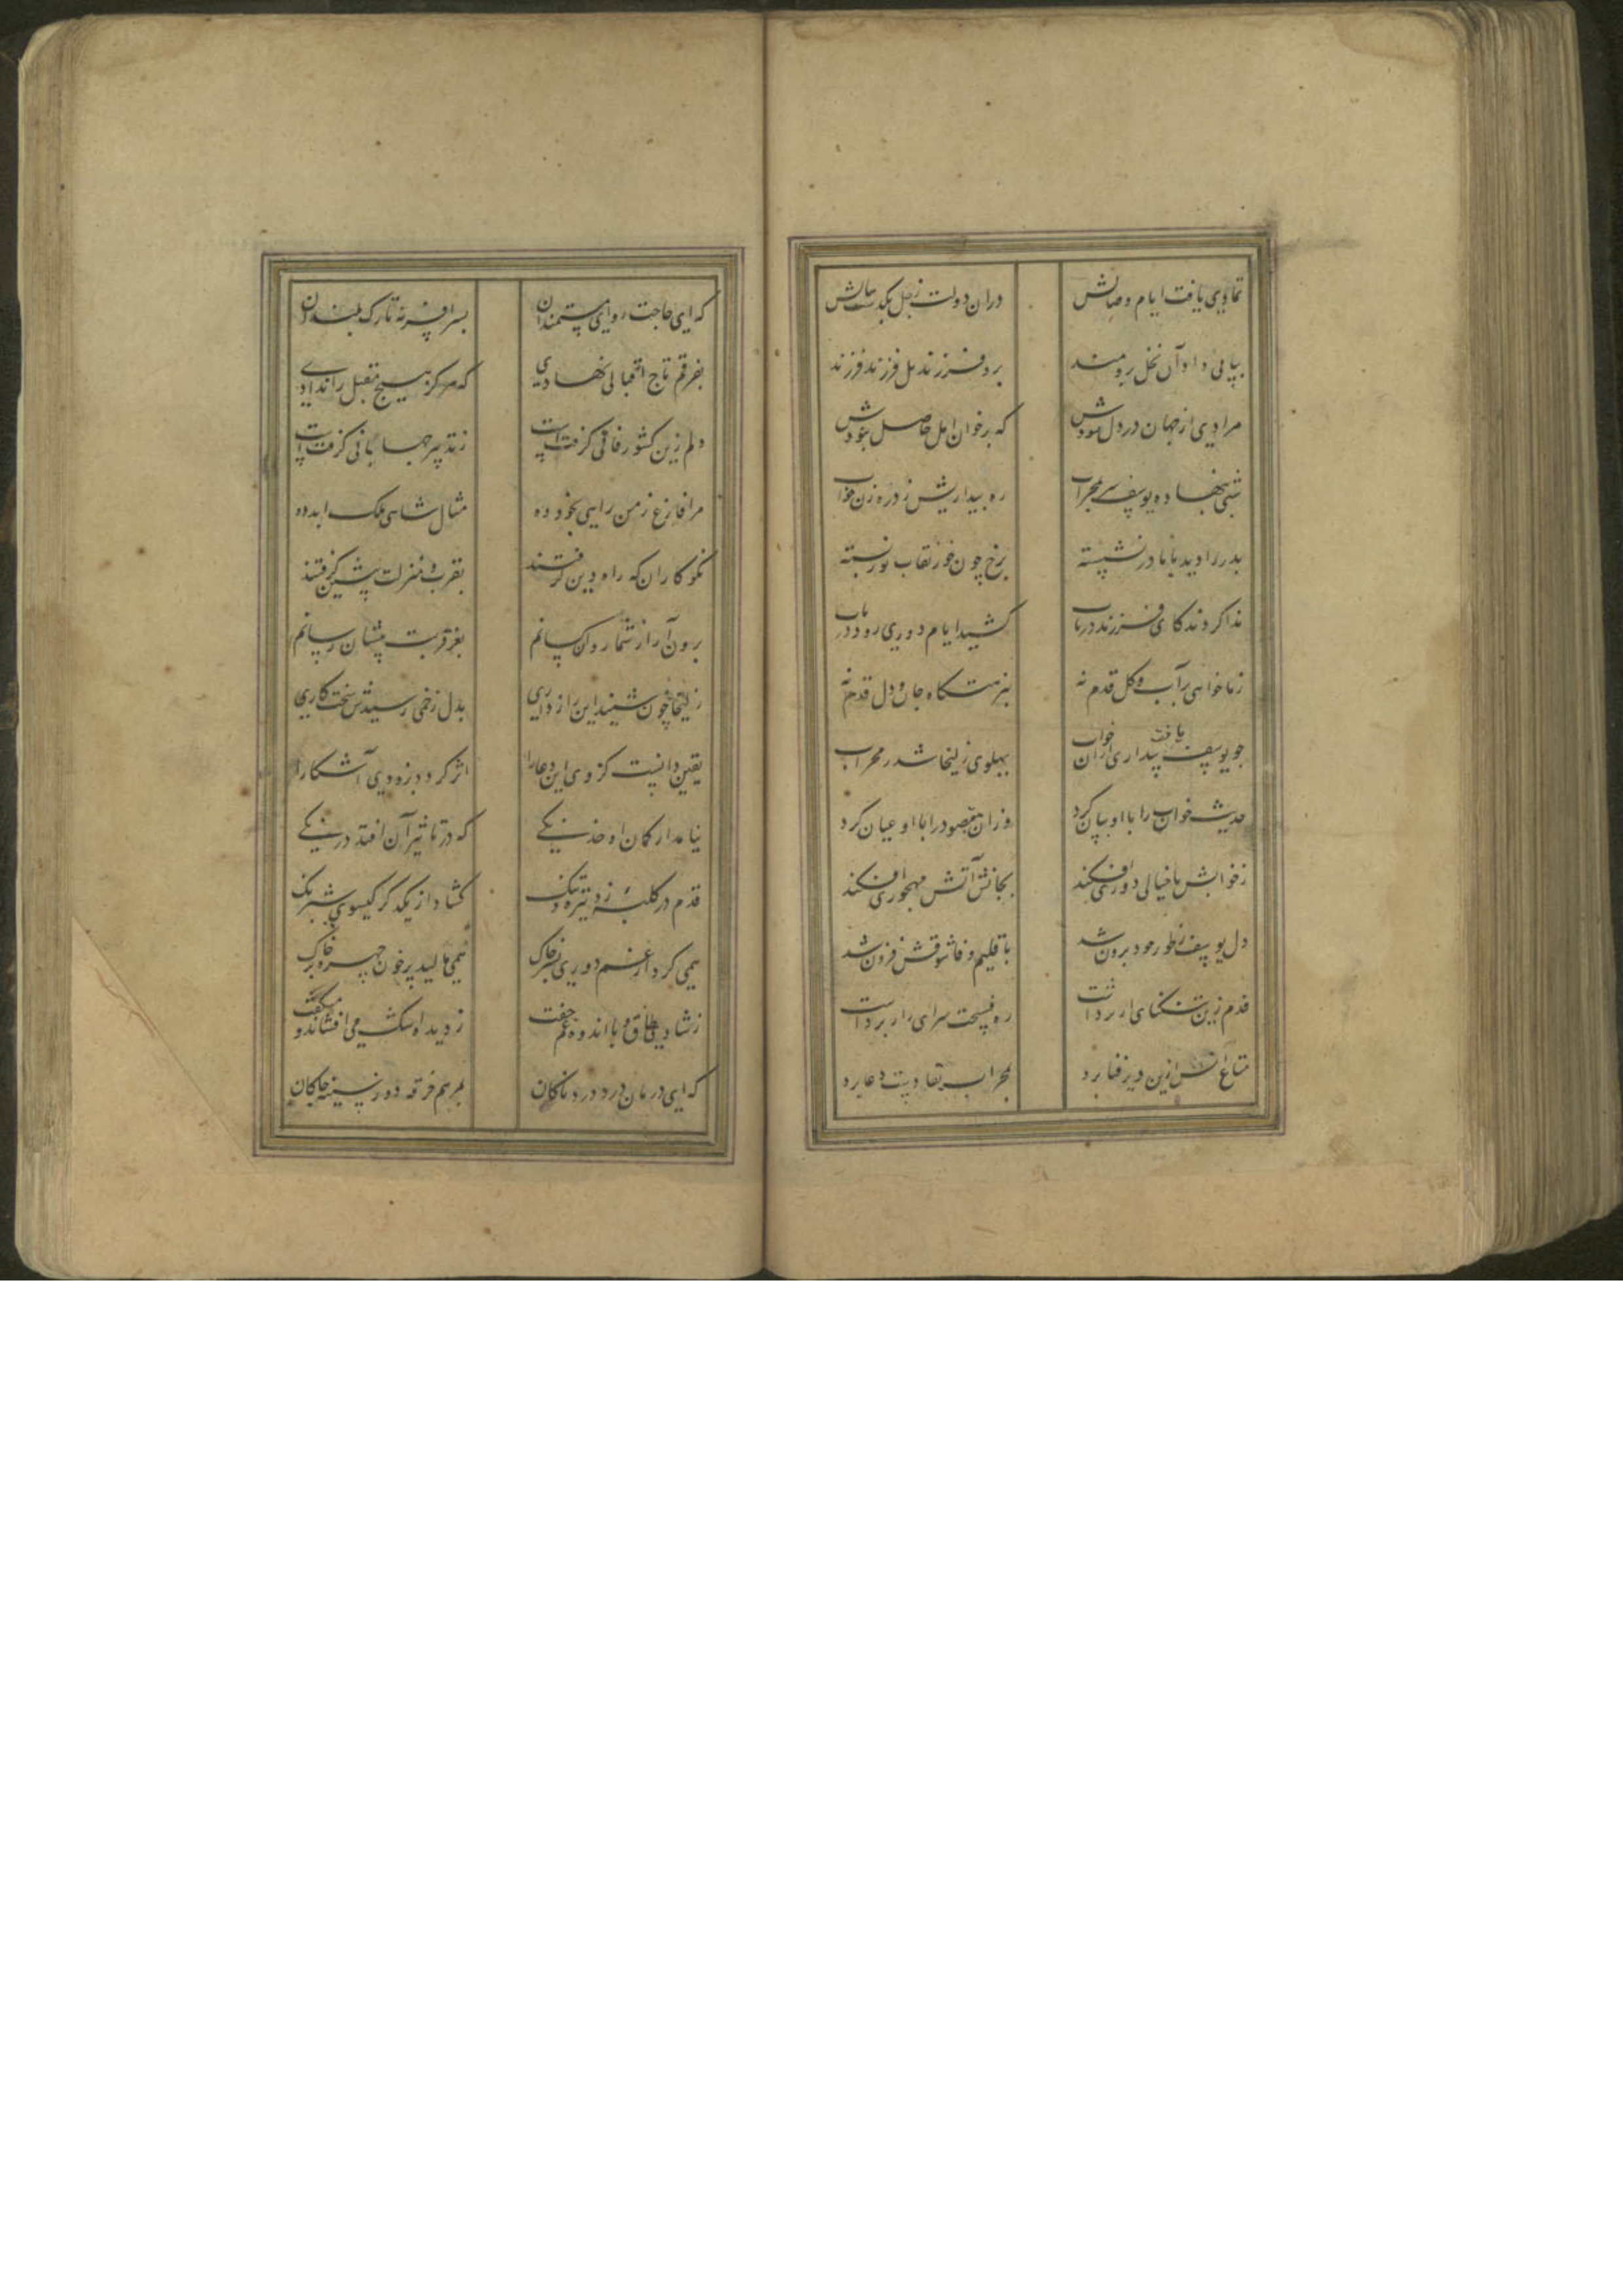 تمادی یافت ایام وصالش
دران دولت زچل بگذشت سالش
پیاپی داد آن نخل برومند
بر فرزند بل فرزند فرزند
مرادی از جهان در دل نبودش
که بر خوان امل حاصل نبودش
شبی بنهاده یوسف سر بمحراب
ره بیداریش زد رهزن خواب
پدر را دید با مادر نشسته
برخ چون خور نقاب نور بسته
ندا کردند کای فرزند دریاب
کشید ایام دوری زود دریاب
بر آب و کل قدم نه
بنزهتکاه جان و دل قدم نه
چو یوسف یافت بیداری ازان خواب
بپهلوی زلیخا شد ز محراب
حدیث خواب را با او بیان کرد
وزان مقصود را با او عیان کرد
زخوابش با خیالی دوری افکند
بجانش آتش مهجوری افکند
دل یوسف زطور خود برون شد
باقلیم وفا شوقش فزون شد
قدم زین تنکنای از برداشت
ره فسحت سرای راز برداشت
متاع انس ازین دیر فنا برد
بمحراب بقا دست دعا برد
که ای حاجت روای مستمندان
بسر افسر نه تارک بلندان
بفرقم تاج اقبالی نهادی
که هرکز هیچ مقبل را ندادی
دلم زین کشور فانی کرفتست
زتدبیر جهانبانی کرفتست
مرا فارغ ز من راهی بخود ده
مثال شاهی ملک ابد ده
نکوکاران که راه دین کرفتند
بقرب و منزلت پیشی کرفتند
برون آر از شمار واپسانم
بعز قربت ایشان رسانم
زلیخا چون شنید این رازداری
بدل زخمی رسیدش سخت کاری
یقین دانست کز وی این دعا را
اثر کردد بزودی آشکارا
نیامد از کمان او خدنکی
که در تاثیر آن افتد درنکی
قدم در کلبه زد تیره و تنک
کشاد از یکدکر کیسوی شبرنک
همی کرد از غم دوری بسر خاک
همی مالید پر خون چهره بر خاک
زشادی طاق و با اندوه و غم جفت
ز دیده اشک می افشاند و میکفت
که ای درمان درد دردناکان
بمرهم خرقه دوز سینه چاکان